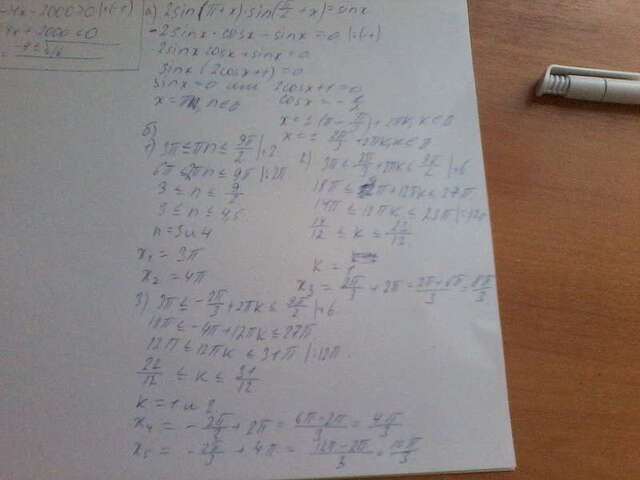 а) 2sin(π+x)·sin(π/2+x)=sinx
-2sinx·cosx-sinx=0 |:(-1)
2sinx cosx+sinx=0
sinx(2cosx+1)=0
sinx=0 или 2cosx+1=0
x=πn, n∈Z cosx=-1/2
x=±(π-π/3)+2πk, k∈Z
x=±2π/3+2πk, k∈Z
б)
1) 3π≤πn≤9π/2 |·2
6π≤2πn≤9π |:2π
3≤n≤9/2
3≤n≤4,5
n=3 и 4
x₁=3π
x₂=4π
2) 3π≤2π/3+2πk≤9π/2 |·6
18π≤4π+12πk≤27π
14π≤12πk≤23π |:12π
14/12≤k≤23/12
k=1
x₃=2π/3+2π=2π+6π/3=8π/3
3) 3π≤-2π/3+2πk≤9π/2 |·6
18π≤-4π+12πk≤27π
≤12πk≤31π |:12π
22/12≤k≤31/12
k=1 и 2
x₄=-2π/3+2π=6π-2π/3=4π/3
x₅=-2π/3+4π=12π-2π/3=10π/3